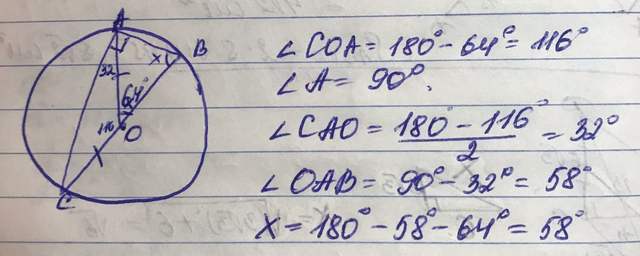 A
B
32°
x
64°
116°
O
C
∠COA = 180° - 64° = 116°
∠A = 90°.
∠CAO = (180° - 116°)/2 = 32°
∠OAB = 90° - 32° = 58°
X = 180° - 58° - 64° = 58°